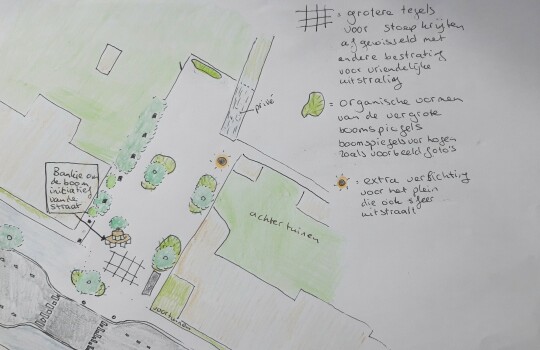 = grotere tegels
voor stoep krijten
afgewisseld met
andere bestrating
voor vriendelijke
uitstraling
privé
= organische vormen
van de vergrote
boomspiegels
boomspiegels verhogen
zoals voorbeeld foto's
Bankje om
de boom
initiatief
van de
straat
= extra verlichting
voor het plein
die ook sfeer
uitstraalt
achtertuinen
voortuinen